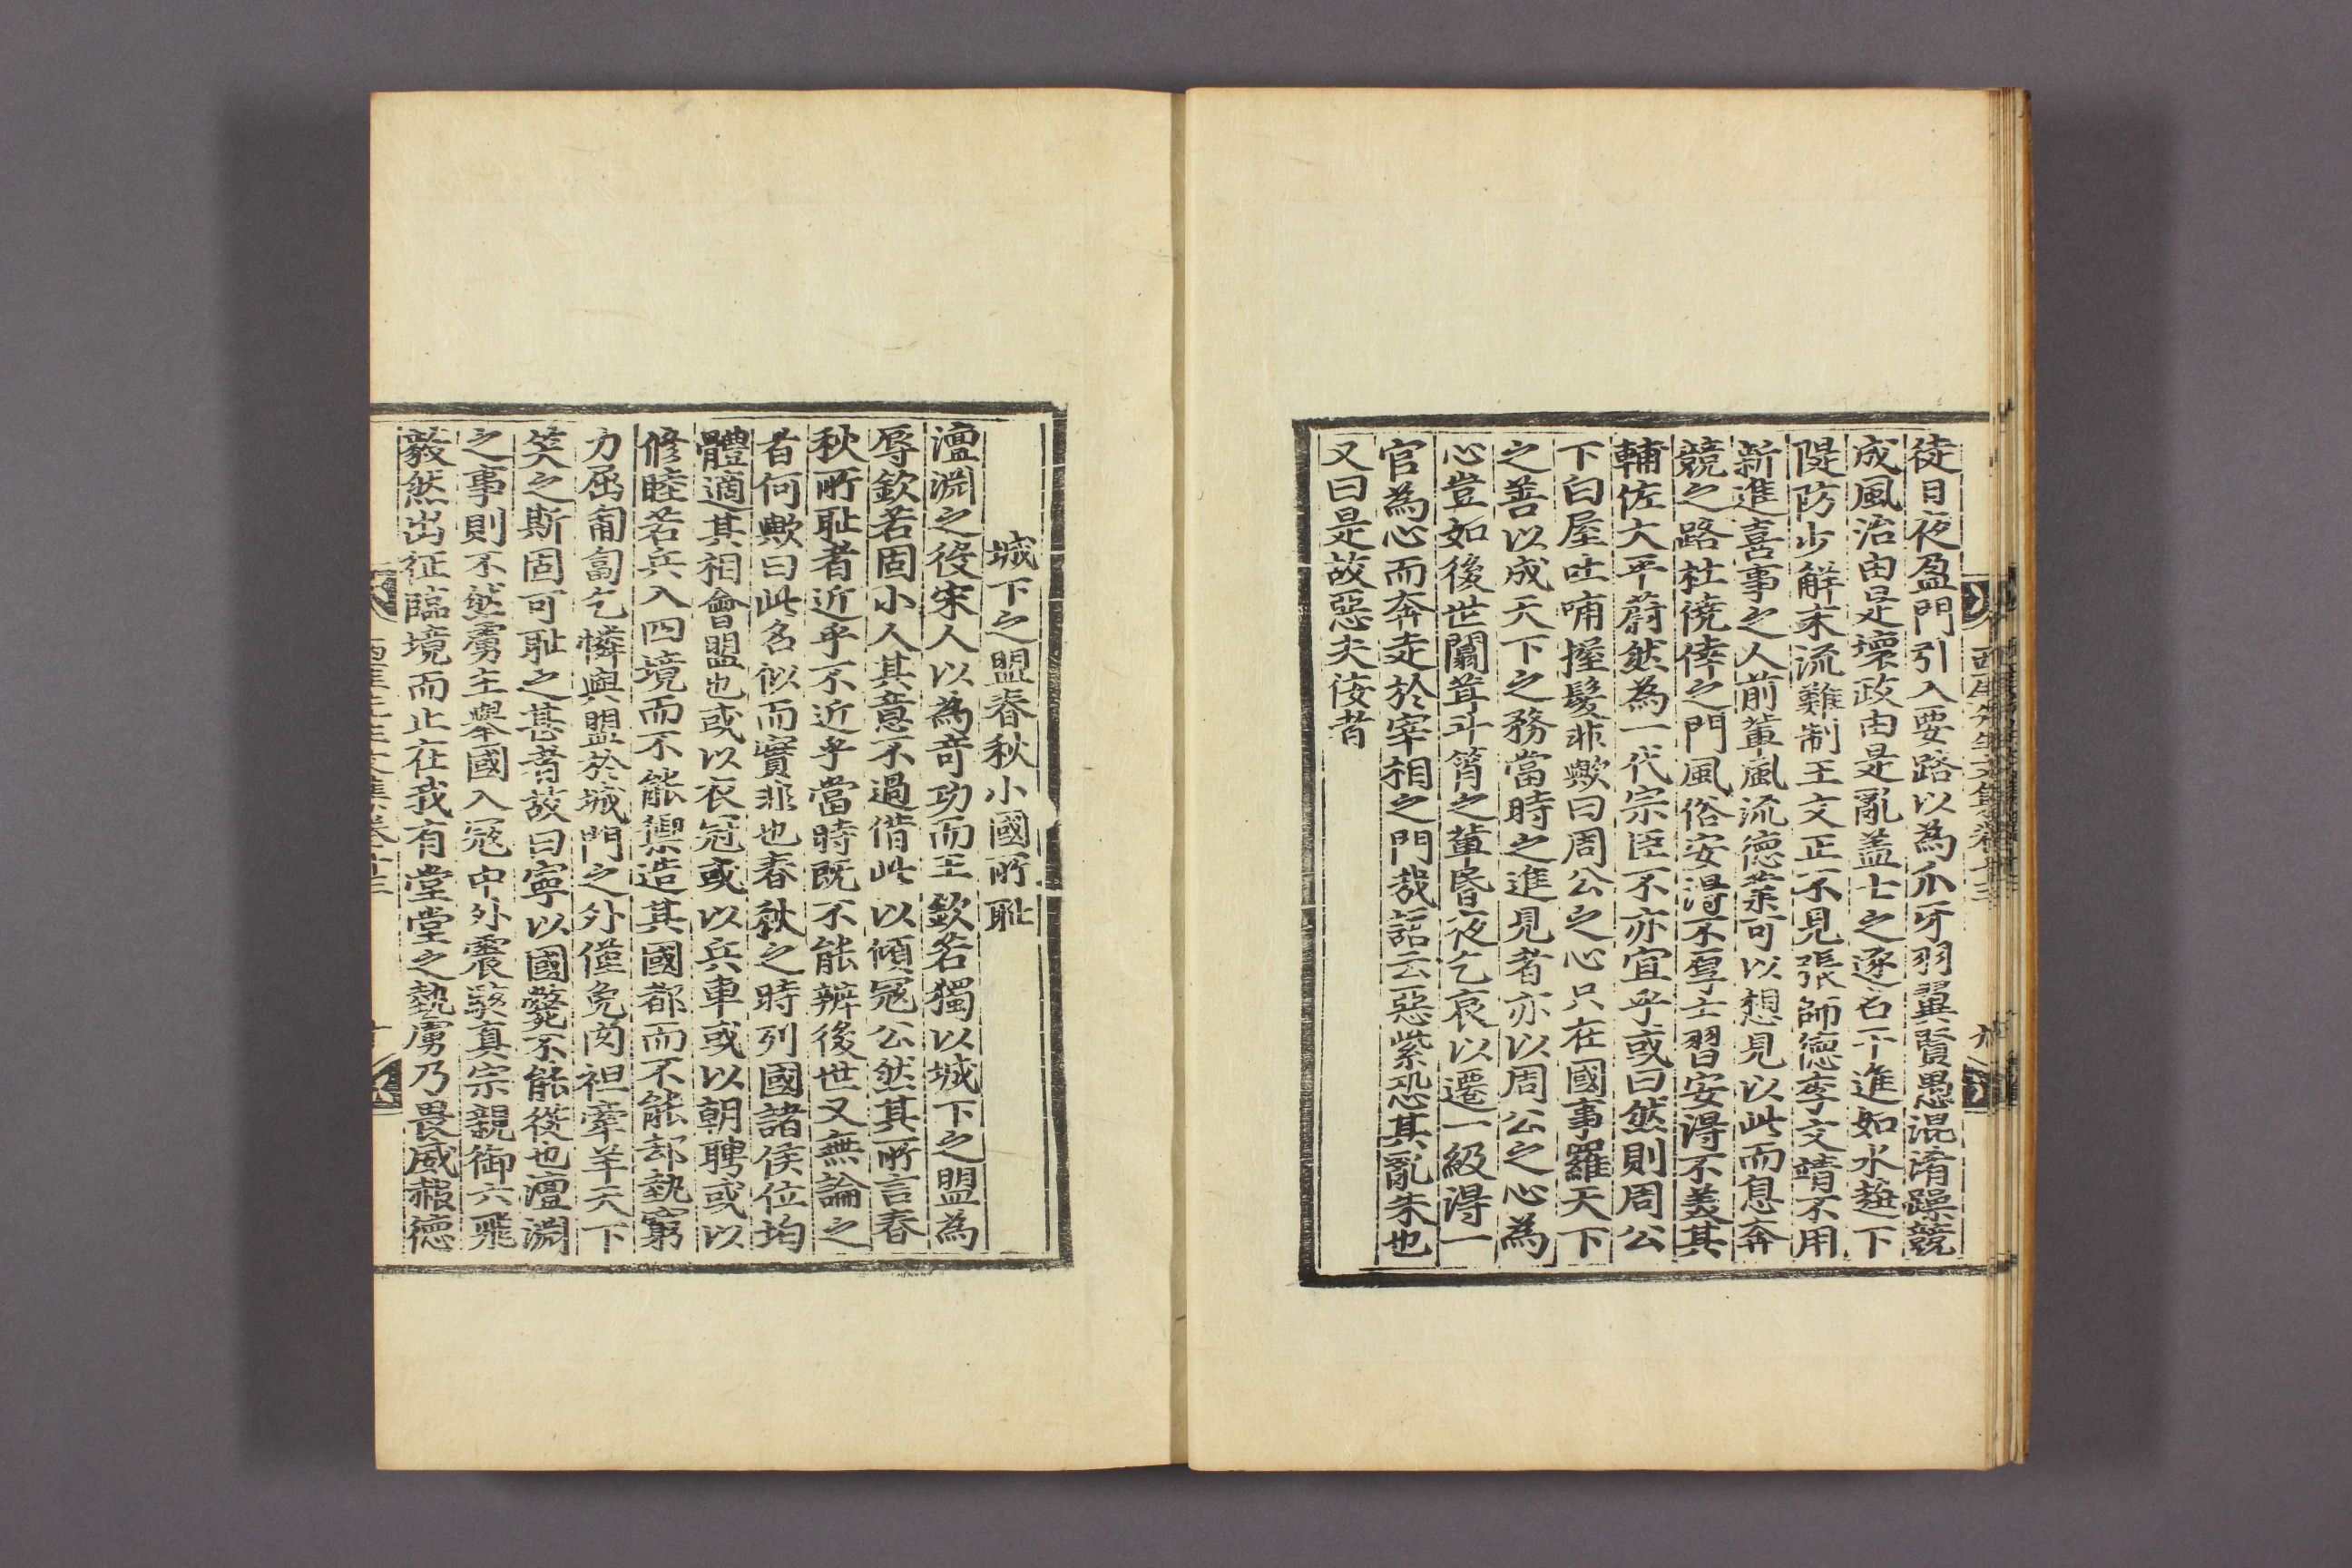 徒日夜盈門引入要路以為爪牙羽翼賢愚混淆躁競
成風治由是壞政由是亂盖士之逐名下進如水趍下
隄防少解末流難制王文正不見張師德李文靖不用
新進喜事之人前軰風流德業可以想見以此而息奔
競之路杜僥倖之門風俗安淂不厚士習安得不美其
輔佐大平蔚然為一代宗臣不亦宜乎或曰然則周公
下白屋吐哺握髮非歟曰周公之心只在國事羅天下
之善以成天下之務當時之進見者亦以周公之心為
心豈如後世闒茸斗筲之軰昏夜乞哀以遷一級得一
官為心而奔走於宰相之門哉語云惡紫恐其亂朱也
又曰是故惡夫侫者
城下之盟春秋小國所耻
澶淵之役宋人以為奇功而王欽若獨以城下之盟為
辱欽若固小人其意不過借此以傾冦公然其所言春
秋所耻者近乎不近乎當時既不能辨後世又無論之
者何歟曰此名似而實非也春秋之時列國諸侯位均
體適其相會盟也或以衣冠或以兵車或以朝聘或以
修睦若兵入四境而不能禦造其國都而不能却勢窮
力屈匍匐乞憐與盟於城門之外僅免肉袒牽羊天下
笑之斯固可耻之甚者故曰寧以國斃不能從也澶淵
之事則不然虜主舉國入冦中外震駭真宗親御六飛
毅然出征臨境而止在我有堂堂之勢虜乃畏威赧德